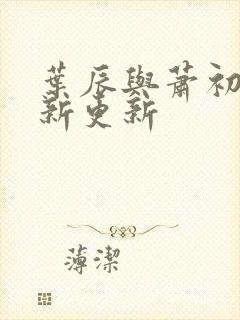 葉辰與蕭初
新更新
薄潔